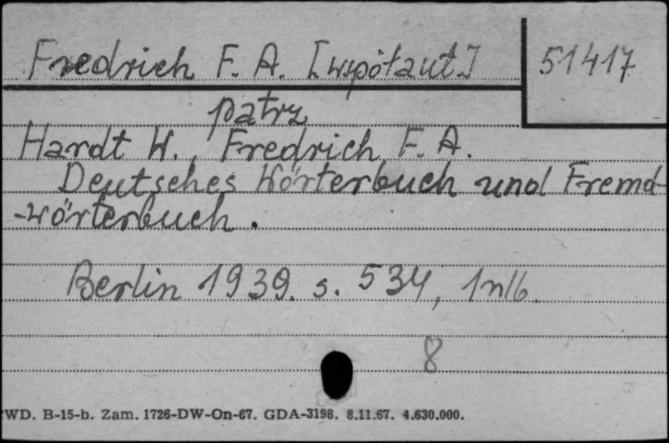 Fredrich F. A. [współaut.]
51417
patrz
Hardt W., Fredrich F. A.
Deutsches Wörterbuch und Fremd-
-wörterbuch.
Berlin 1939. s. 534, 1 nlb.
8
WD. B-15-b. Zam. 1726-DW-On-67. GDA-3198. 8.11.67. 4.630.000.